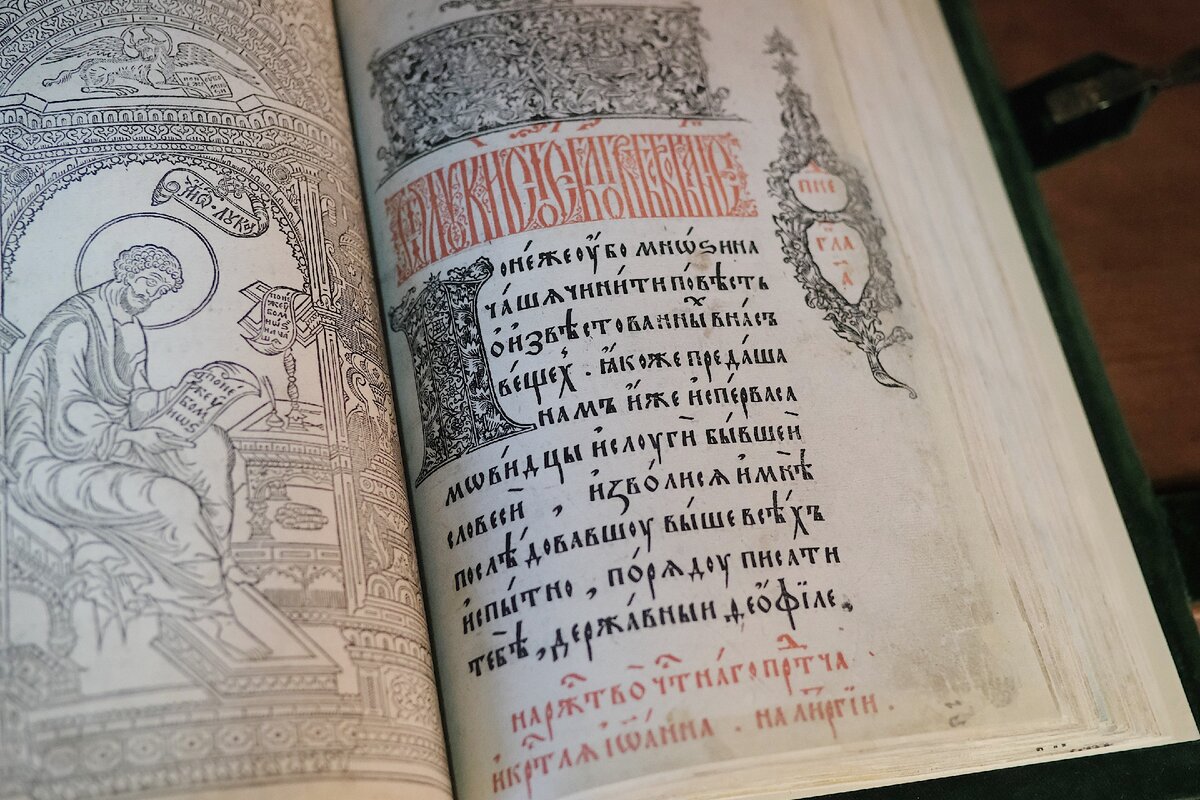 ЛꙊКА
понежеꙋбо мнѡѕи нача
поне
жеꙋ
бо м
нѡѕ
Поне́же оу҆́бо мнѡ́ѕи на
ча́ша чини́ти по́вѣсть
о҆ и҆звѣ́стованны̑ в на́съ
ве́щеⷯ. ꙗ҆́коже преда́ша
намъ и҆́же и҆спе́рва са
мови́дцы и҆ слоуги̑ бы́вшеи҆
словесѝ, и҆зво́лися и҆ мнѣ̀
послѣ́довавшоу вы́ше всѣ́хъ
и҆спы́тно, по́рѧдоу писати
тебѣ̀, держа́вныи ѳео҆́фїле.
на рⷤтво̀ чтⷭнаго прⷣтча
и҆ крⷭтлѧ і҆ѡа́нна. на лиⷮргїи.